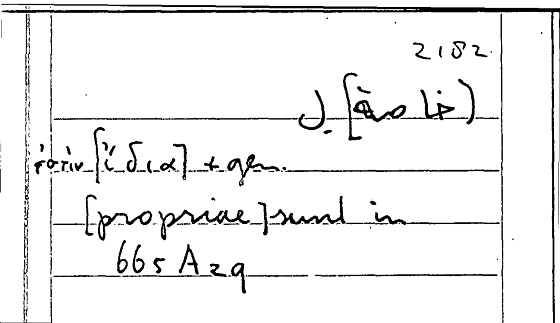 2182
ἐστὶν [ἴδια] + gen.
[propriae] sunt in
665 A 29